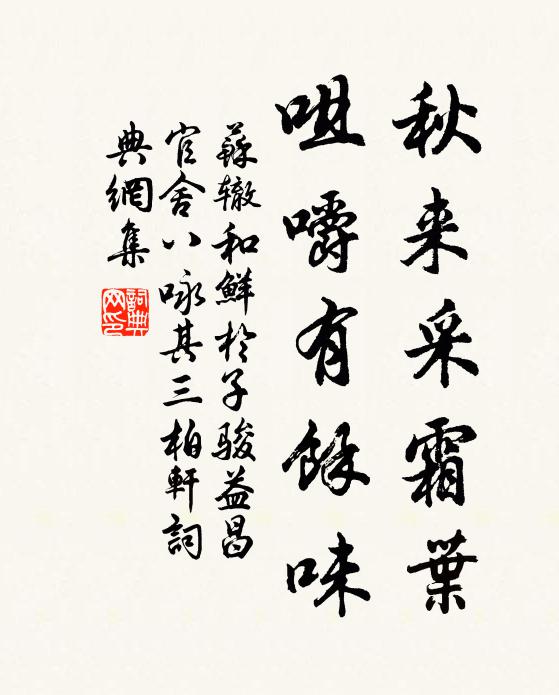 秋来采霜葉
咀嚼有餘味
蘇辙和鮮於子骏益昌
官舍八咏其三柏軒詞
典網集
詞典
网印